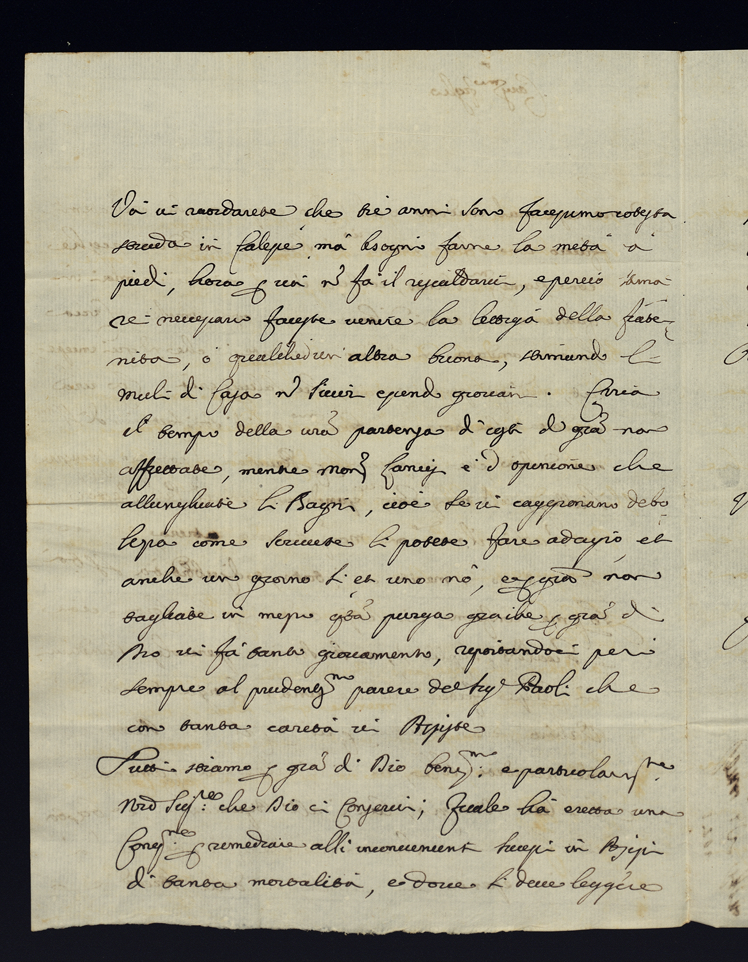 Voi vi ricordarete che trè anni sono facessimo cotesta
strada in Calesse mà bisognò farne la metà à
piedi, hora p voi nō fà il riscaldarvi, e perciò
necessario faceste venire la lettiga della frater-
nita, ò qualched'un altra buona, stimando li
muli di Casa nō sicuri essend giovani. Circa
il tempo della vrã partenza di costì d grã non
affrettate, mentre Mons Lancisi è d opinione che
allunghiate li Bagni, cioè se vi caggionano debo
lezza come scrivete li potete fare adagio, et
anche un giorno sì et uno nò, e p grã non
tagliate in mezzo qstã purga giache p grã di
Dio vi fà tanto giovamento, riportandovi però
sempre al prudenmo parere del Sigr Paoli che
con tanta carità vi Assiste
Tutti stiamo p grã di Dio benismo: e particolarmte
Nro Sigre che Dio ci Conservi; Quale hà eretta una
Congne p remediare alli inconvenienti successi in Assisi
di tanta mortalità, e dove si deve leggere